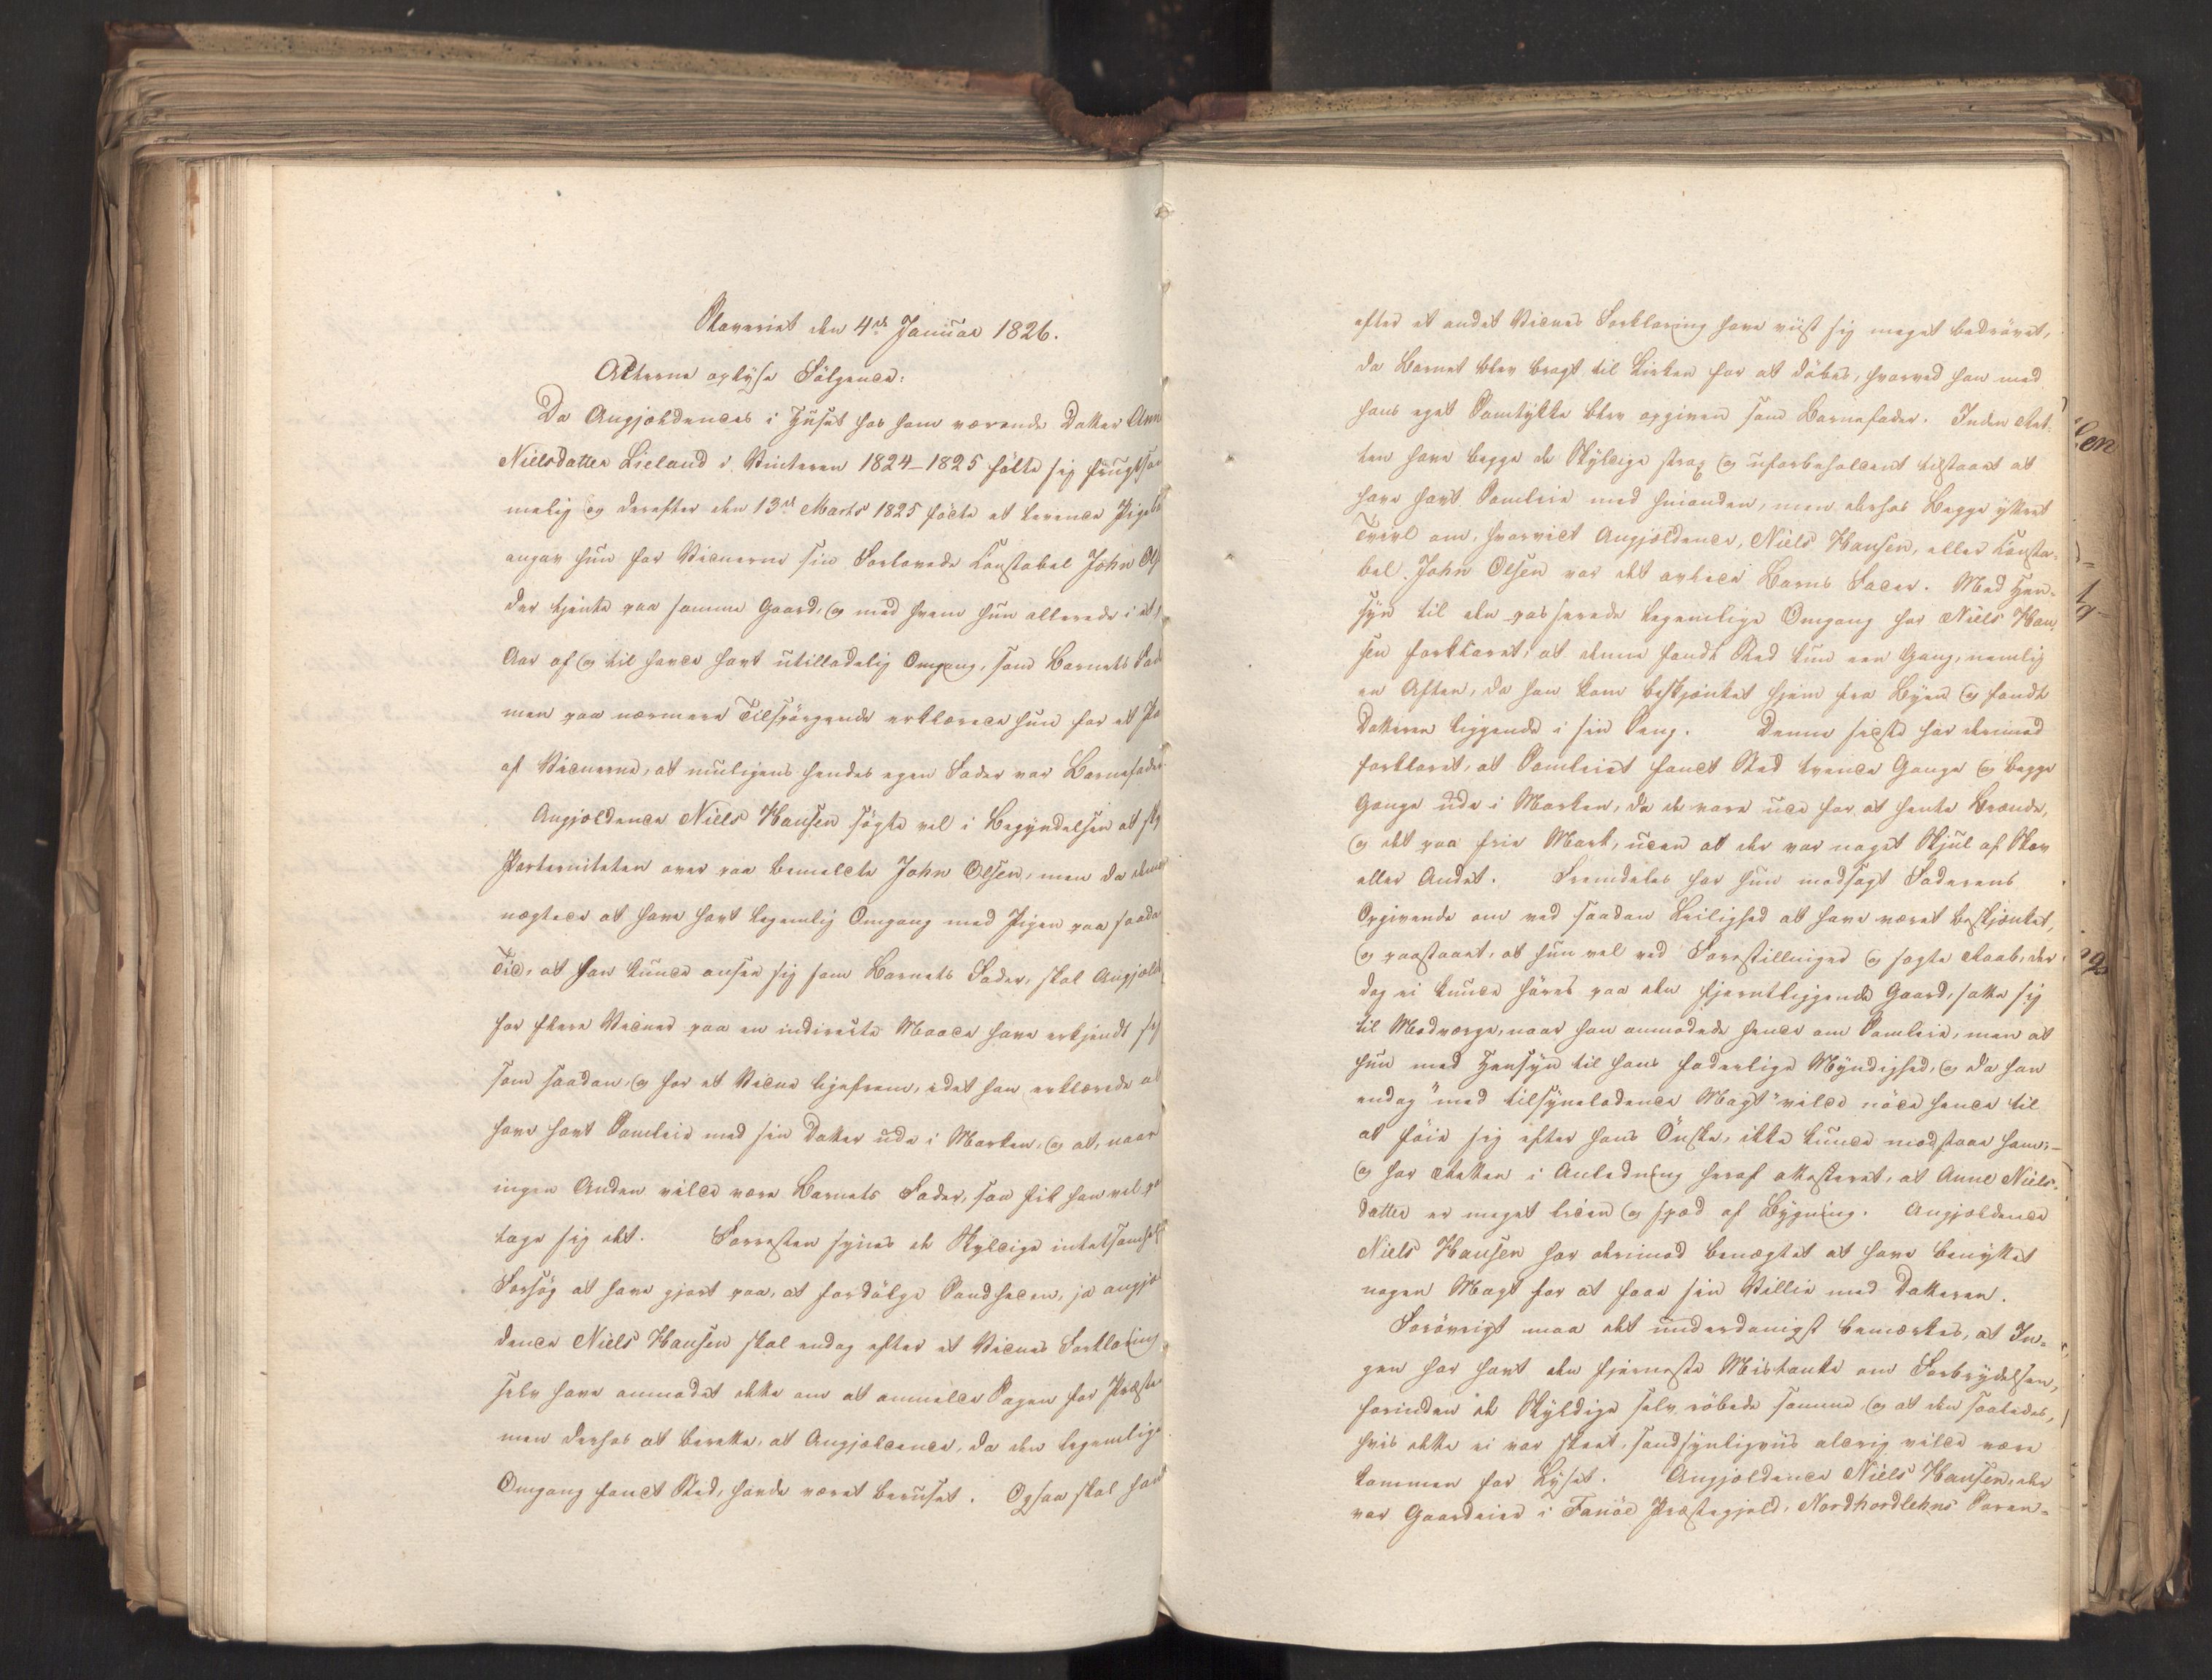 Plaveriet den 4de Januar 1826.
Acterne oplyse Følgende:
Da Angjeldendes i Huset hos ham værende Datter Ann
Nielsdatter Lieland i Vinteren 1824-1825 følte sig frugtsom
melig og derefter den 13de Marts 1825 fødte et levende Pige
angav hun for Vidnerne sin Forlovede Constabel John Ols
der tjente paa samme Gaard, og med hvem hun allerede i et
Aar af og til havde havt utilladelig Omgang, som Barnets Fad
men paa nærmere Tilspørgende erklærede hun for et Pa
af Vidnerne, at muligens hendes egen Fader var Barnefader.
Angjeldende Niels Hansen søgte vel i Begyndelsen at sky
Paterniteten over paa bemeldte John Olsen, men da denne
negtede at have havt legemlig Omgang med Pigen paa saada
Tid, at han kunde ansee sig som Barnets Fader, skal Angjeld
for flere Vidner paa en indirecte Maade have erkjendt sig
som saadan, og for et Vidne ligefrem, idet han erklærede at
have havt Samleie med sin Datter ude i Marken, og at, naar
ingen Anden vilde være Barnets Fader, saa fik han vel p
tage sig det. Forresten synes de Skyldige intetsomhelst
Forsøg at have gjort paa, at fordølge Sandheden, ja angje
dende Niels Hansen skal endog efter et Vidnes Forklaring
selv have anmodet dette om at anmelde Sagen for Præste
men derhos at berette, at Angjeldende, da den legemlige
Omgang fandt Sted, havde været beruset. Ogsaa skal han
efter et andet Vidnes Forklaring have viist sig meget bedrøvet,
da Barnet blev bragt til Kirken for at døbes, hvorved han med
hans eget Samtykke blev opgiven som Barnefader. Inden Ret-
ten have begge de Skyldige strax og uforbeholdent tilstaaet at
have havt Samleie med hinanden, men derhos Begge yttret
Tvivl om, hvorvidt Angjeldende, Niels Hansen, eller Consta-
bel John Olsen var det avlede Barns Fader. Med Hen-
syn til den passerede legemlige Omgang har Niels Han
sen forklaret, at denne fandt Sted kun een Gang, nemlig
en Aften, da han kom beskjenket hjem fra Byen og fandt
Datteren liggende i sin Seng. Denne sidste har derimod
forklaret, at Samleiet fandt Sted tvende Gange og begge
Gange ude i Marken, da de vare ude for at hente Brænde,
og det paa frie Mark, uden at der var noget Skjul af Skov
eller Andet. Fremdeles har hun modsagt Faderens
Opgivende om ved saadan Leilighed at have været beskjenket,
og paastaaet, at hun vel ved Forestillinger og sagte Raab, der
dog ei kunde høres paa den fjerntliggende Gaard, satte sig
til Modværge, naar han anmodede hende om Samleie, men at
hun med Hensyn til hans faderlige Myndighed, og da han
endog "med tilsyneladende Magt" vilde nøde hende til
at føie sig efter hans Ønske, ikke kunde modstaae ham;-
og har Retten i Anledning heraf attesteret, at Anne Niels-
datter er meget liden og spæd af Bygning. Angjeldende
Niels Hansen har derimod benægtet at have benyttet
nogen Magt for at faae sin Villie med Datteren.
Forøvrigt maa det underdanigst bemærkes, at In-
gen har havt den fjerneste Mistanke om Forbrydelsen,
forinden de Skyldige selv røbede samme, og at den saaledes,
hvis dette ei var skeet, sandsynligviis aldrig vilde være
kommen for Lyset. Angjeldende Niels Hansen, der
var Gaardeier i Fanøe Præstegjeld, Nordhordlehns Soren-